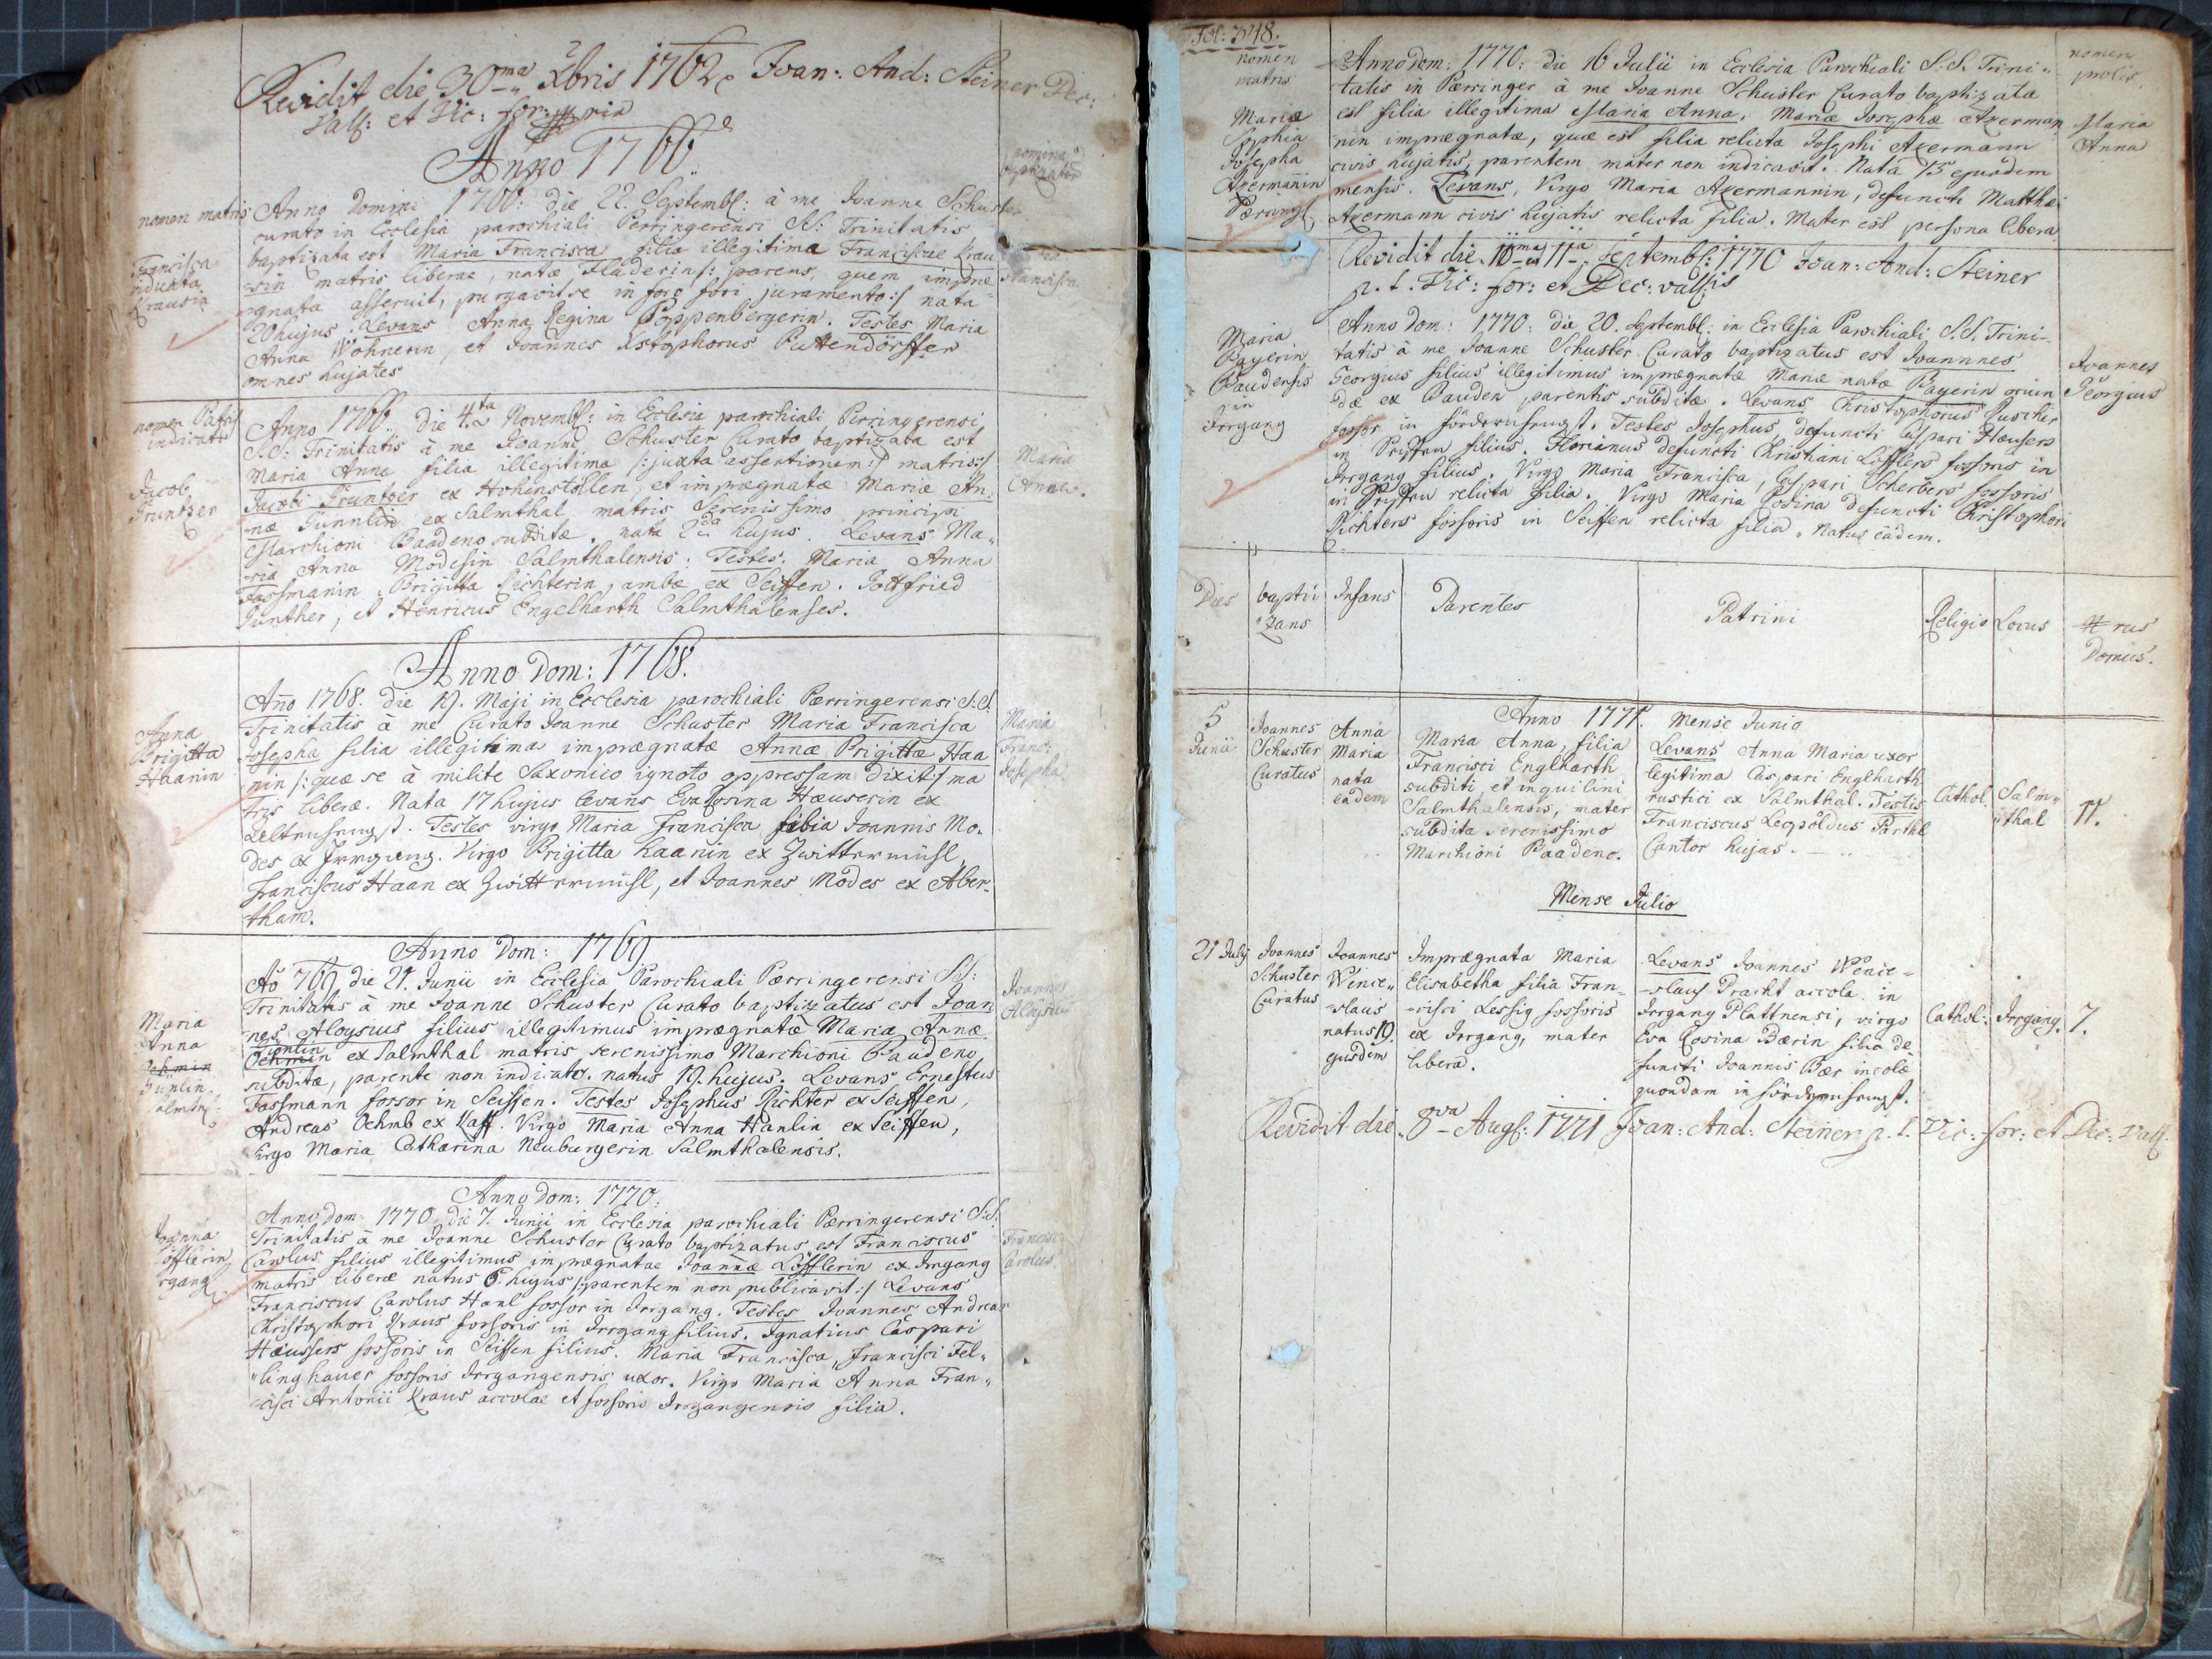 Revidit die 30ma Xbris 1762 Joan: And: Steiner Dec:
Vall: et Vic: for:
Anno 1766
nomen matris
Anno Domini 1766: die 22. Septembl: à me Joanne Schuster
curato in Ecclesia parochiali Perringerensi SS: Trinitatis
baptizata est Maria Francisca filia illegitima Franciscae Krau
Francisca
Krausin
-sin matris liberae, natae Fladerin /: parens, quem impræ-
gnata asseruit, purgavit se in foro fori juramento :/ nata
Francisca
20 hujus. Levans Anna Regina Poppenbergerin. Testes Maria
Anna Wohnerin, et Joannes Xstophorus Puttendörffer
omnes hujates
nomen Patris
indicati
Jacob
Grüntzer
Anno 1766. die 4.ta Novembl: in Ecclesia parochiali Perringerensi
S:S: Trinitatis à me Joanne Schuster Curato baptizata est
Maria Anna filia illegitima /: juxta assertionem :/ matris :/
Maria
Anna.
Jacobi Grüntzer ex Hohenstollen, et imprægnatæ Mariæ An-
næ Günnlin ex Salmthal matris Serenissimo principi
Marchioni Baadeno subditæ. nata 2da hujus. Levans Ma-
ria Anna Modesin Salmthalensis. Testes: Maria Anna
Fassmanin, Brigitta Richterin, ambæ ex Seiffen. Gottfried
Günther, et Henricus Engelharth Salmthalenses.
Anno Dom: 1768.
Anna
Brigitta
Haanin
Año 1768. die 19. Maji in Ecclesia parochiali Pærringerensi S:S.
Trinitatis à me Curato Joanne Schuster Maria Francisca
Josepha filia illegitima imprægnatæ Annæ Brigittæ Haa
Maria
Franc:
Josepha
nin /: quæ se à milite Saxonico ignoto oppressam dixit :/ ma
tris liberæ. Nata 17 hujus levans Eva Rosina Hæuserin ex
Testes virgo Maria Francisca filia Joannis Mo-
des ex Irrgang. Virgo Brigitta Haanin ex Zwittermühl,
Franciscus Haan ex Zwittermühl, et Joannes Modes ex Aber-
tham.
Anno Dom: 1769
Maria
Anna
Oehmin
Günlin
Año 769 die 21. Junii in Ecclesia Parochiali Pærringerensi SS:
Trinitatis à me Joanne Schuster Curato baptizatus est Joan
nes Aloysius filius illegitimus imprægnatæ Mariæ Annæ
Joannes
Aloysius
Oehmin ex Salmthal matris serenissimo Marchioni Baadeno
subditæ, parente non indicato. natus 19. hujus. Levans Ernestus
Fassmann fossor in Seiffen. Testes Josephus Richter ex Seiffen,
Andreas Oehmb ex Kaff. Virgo Maria Anna Hanlin ex Seiffen,
virgo Maria Catharina Neuburgerin Salmthalensis.
Anno Dom: 1770:
Joanna
Löfflerin
Anno Dom: 1770. die 7. Junii in Ecclesia parochiali Pærringerensi S:S:
Trinitatis à me Joanne Schuster Curato baptizatus est Franciscus
Carolus filius illegitimus imprægnatae Joannæ Löfflerin ex Irrgang
Carolus
matris liberæ natus 6. hujus /: parentem non publicavit :/ Levans
Franciscus Carolus Hanl fossor in Irrgang. Testes Joannes Andreas
Christophori Kraus fossoris in Irrgang filius. Ignatius Caspari
Hæussers fossoris in Seiffen filius. Maria Francisca, Francisci Fel-
linghauer fossoris Irrgangensis uxor. Virgo Maria Anna Fran-
cisci Antonii Kraus accolae et fossoris Irrgangensis filia.
Fol: 348.
nomen
matris
nomen
prolis
Mariæ
Sophia
Josepha
Axermanin
Anno Dom: 1770: die 16 Julii in Ecclesia Parochiali S.S. Trini-
tatis in Pærringer à me Joanne Schuster Curato baptizata
est filia illegitima Maria Anna, Mariæ Josephæ Axerman
nin imprægnatæ, quæ est filia relicta Josephi Axermann
civis hujatis, parentem mater non indicavit. Nata 15 ejusdem
mensis. Levans, Virgo Maria Axermannin, defuncti Matthæi
Axermann civis hujatis relicta filia. Mater est persona libera
Maria
Anna
Revidit die 10ma et 11ma Septembl: 1770 Joan: And: Steiner
p. t. Vic: for: et Dec: vallis
Maria
Bayerin
Baudensis
in
Irrgang
Anno Dom: 1770: die 20. Septembl: in Ecclesia Parochiali S.S. Trini-
tatis à me Joanne Schuster Curato baptizatus est Joannnes
Georgius filius illegitimus imprægnatæ Mariæ natæ Bayerin oriun
dæ ex Bauden parentis subditæ. Levans Christophorus Puscher
fossor in Testes Josephus defuncti Caspari Hæusers
in filius. Florianus defuncti Christiani Löfflers fossoris in
Irrgang filius. Virgo Maria Francisca, Caspari Scherbers fossoris
in relicta filia. Virgo Maria Rosina defuncti Christophori
Richters fossoris in Seiffen relicta filia. Natus eâdem.
Joannes
Georgius
Dies baptizans Infans Parentes Patrini Religio Locus Nrus
Domus.
Anno 1771. Mense Junio
5
Junii
Joannes
Schuster
Curatus
Anna
Maria
nata
eâdem
Maria Anna, filia
Francisci Englharth
subditi, et inquilini
Salmthalensis, mater
subdita serenissimo
Marchioni Baadeno.
Levans Anna Maria uxor
legitima Caspari Englharth
rustici ex Salmthal. Testis
Franciscus Leopoldus Parthl
Cantor hujas.
Cathol.
Salm-
thal
11.
Mense Julio
21 Julij
Joannes
Schuster
Curatus
Joannes
Wence-
slaus
natus 19.
ejusdem
Imprægnata Maria
Elisabetha filia Fran-
cisci Lessig fossoris
ex Irrgang, mater
libera.
Levans Joannes Wence-
slaus Pracht accola in
Irrgang Plattnensi, virgo
Eva Rosina Bærin filia de
functi Joannis Bær incolæ
quondam in
Cathol:
Irrgang.
7.
Revidit die 8va Augl: 1771 Joan: And: Steiner p. t. Vic: for: et Dec: Vall: